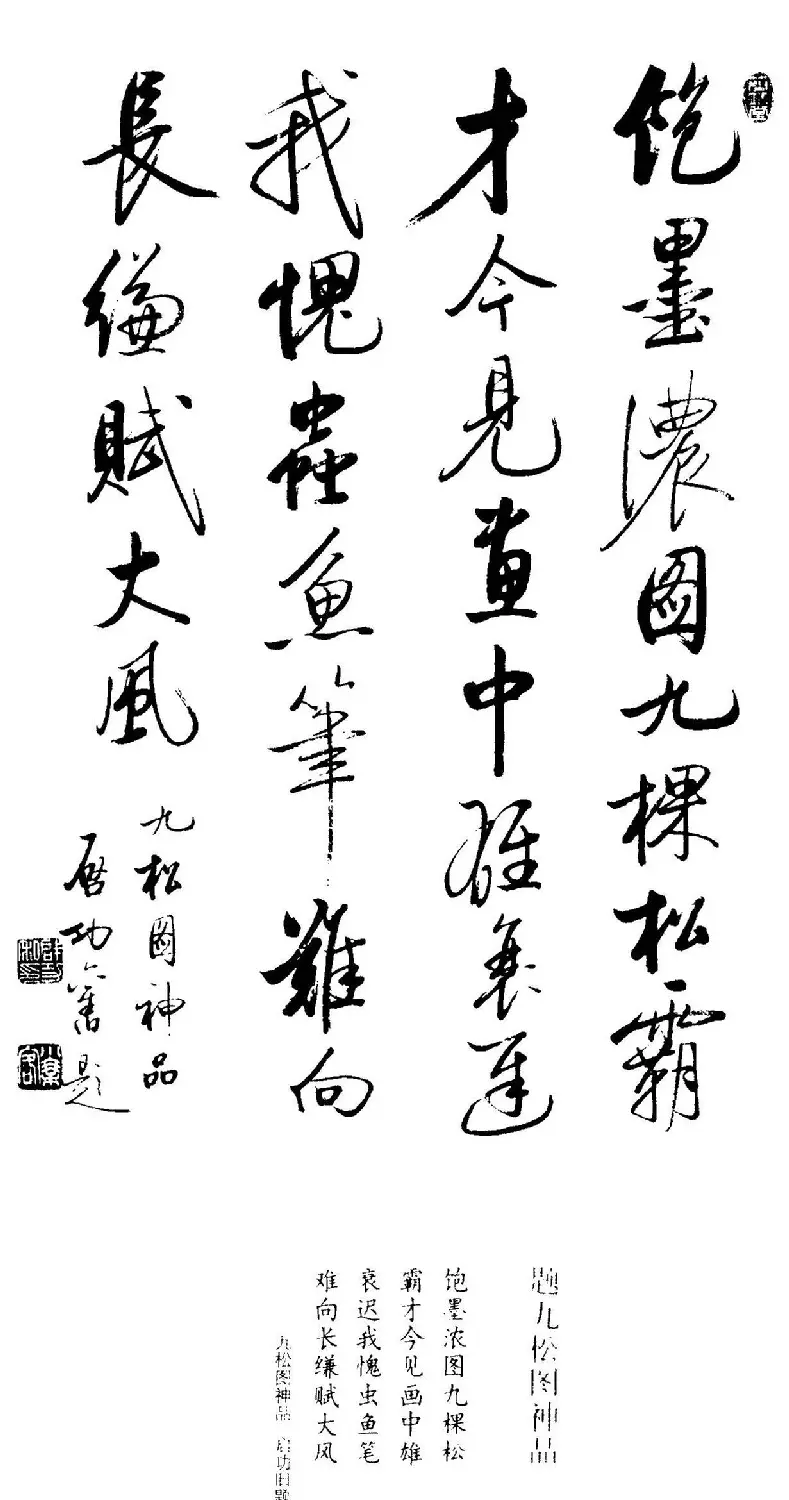 饱墨濃图九棵松霸
才今见畫中雄衰遲
我愧蟲魚筆難向
長縑賦大風
九松图神品
启功舊題
题九松图神品
饱墨浓图九棵松
霸才今见画中雄
衰迟我愧虫鱼笔
难向长缣赋大风
九松图神品 启功旧题